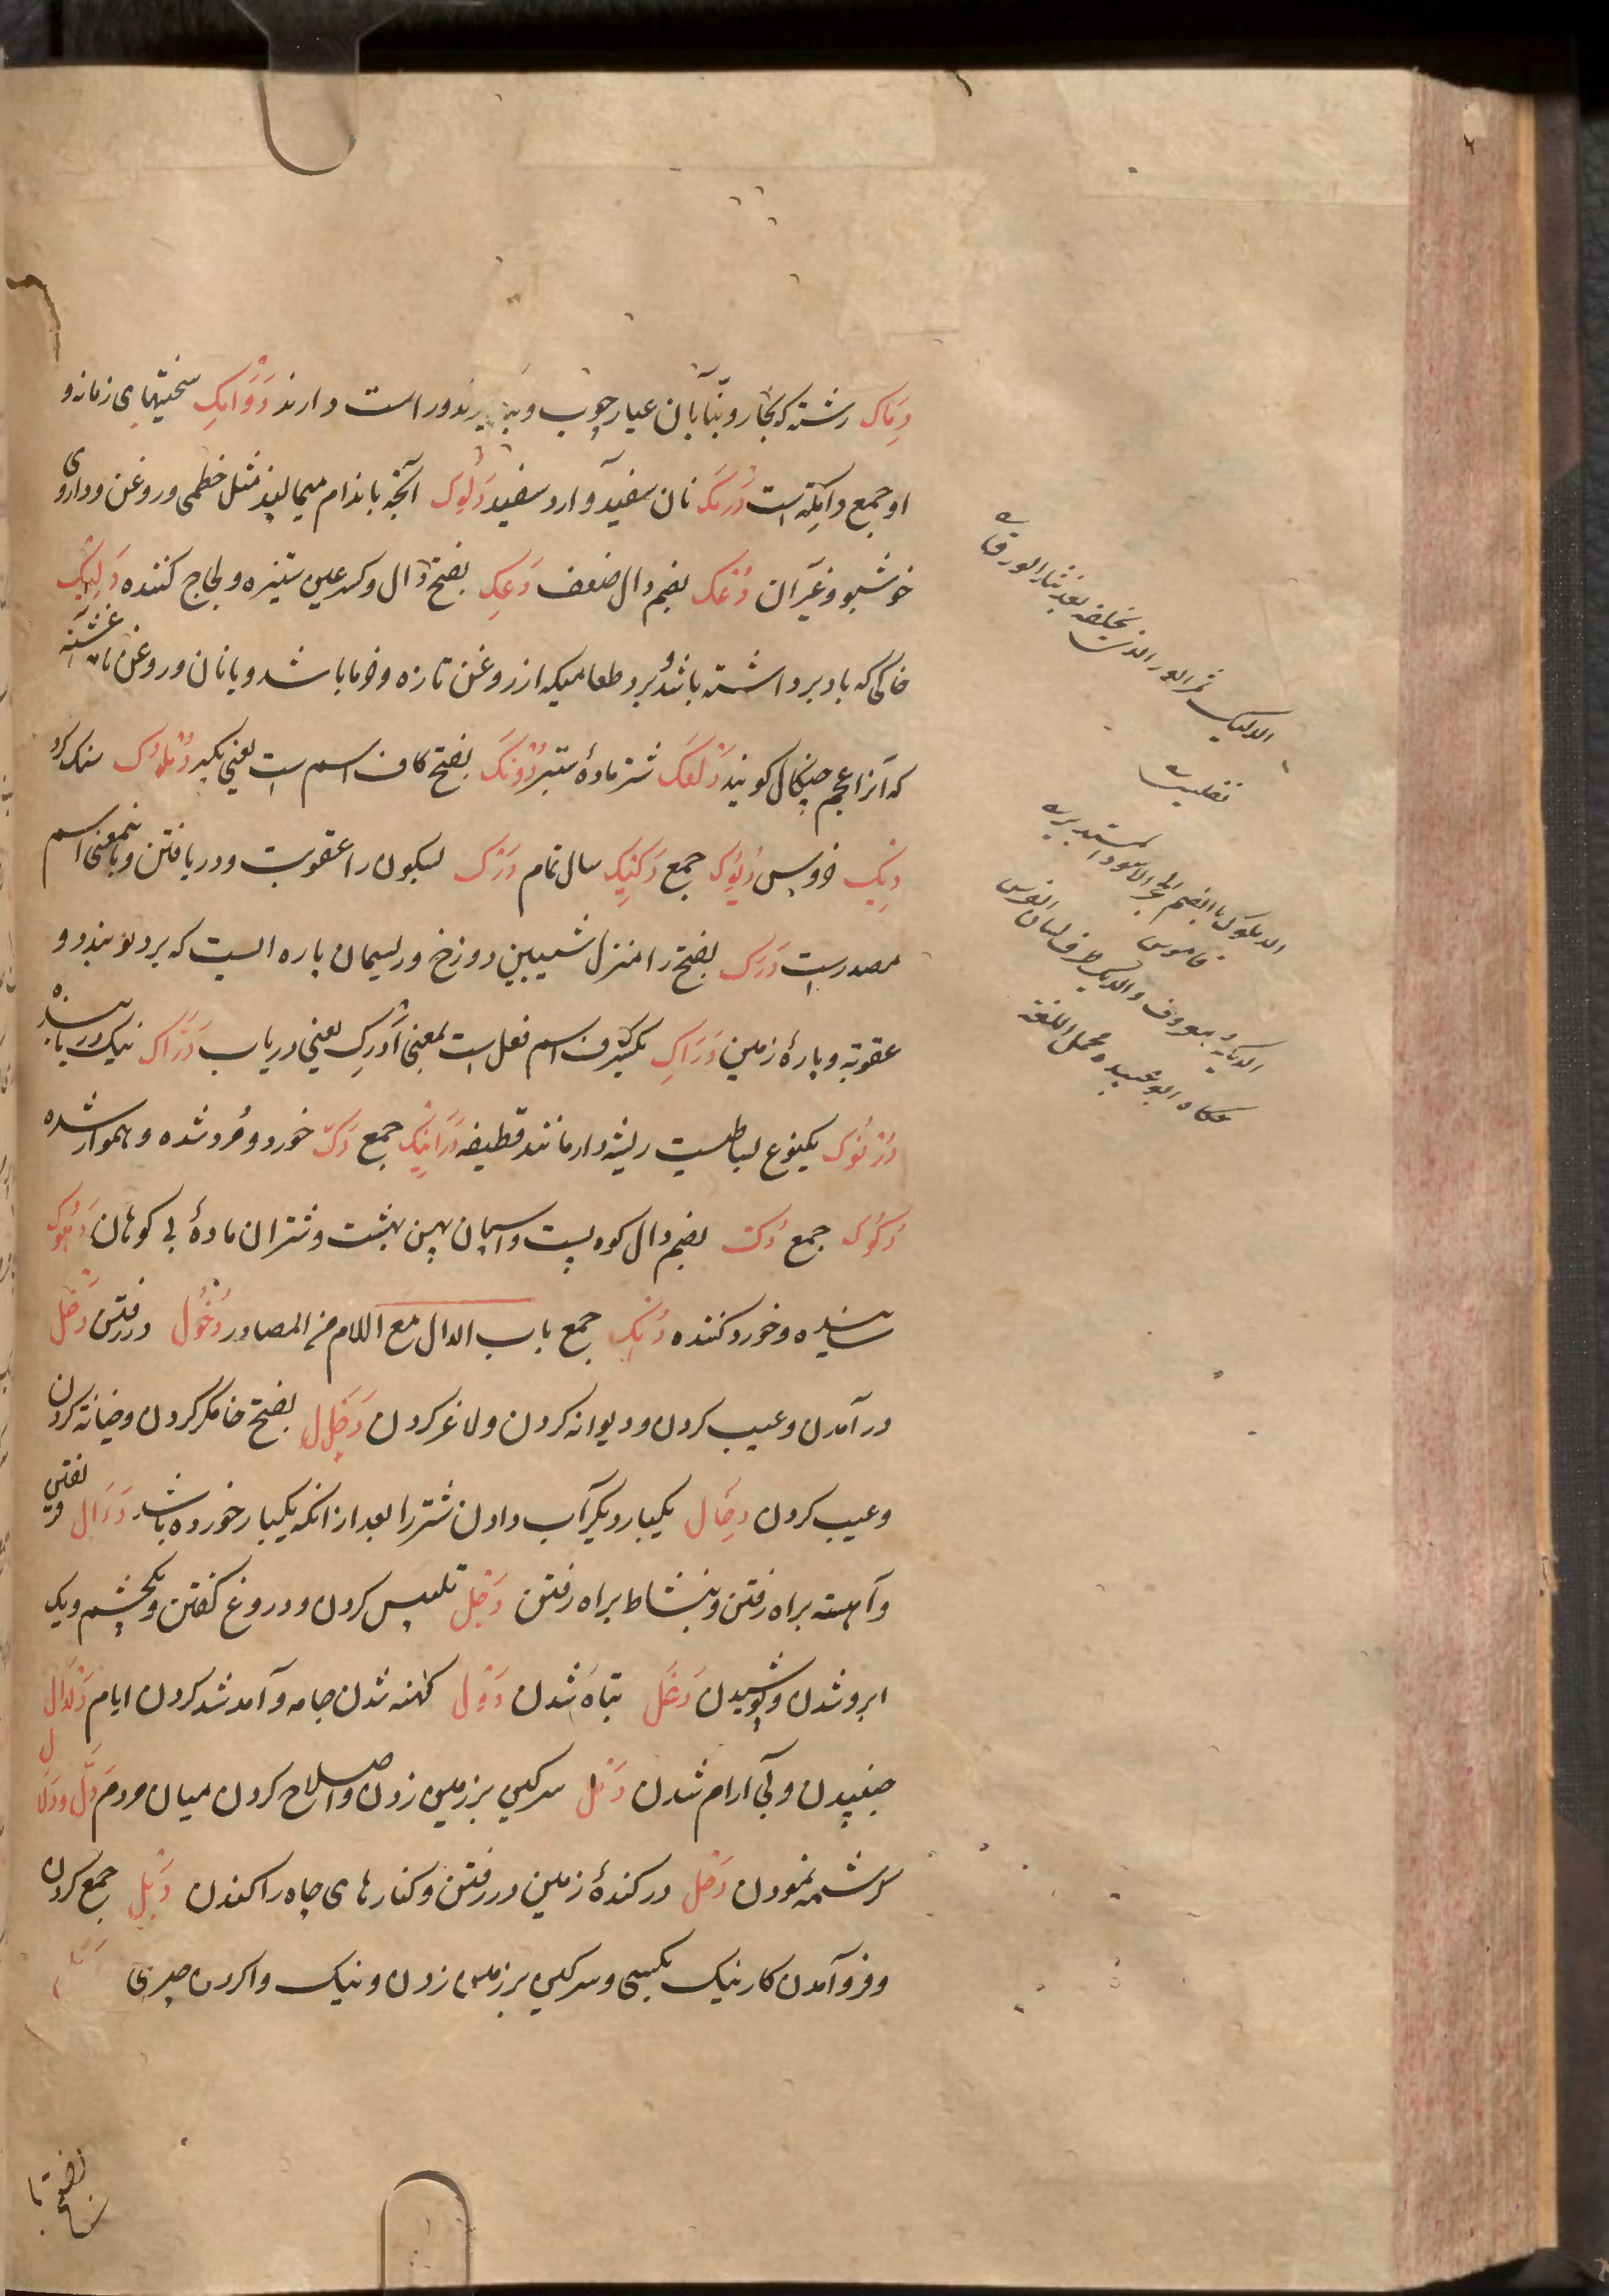 دِمَاک رشته که نجار و بنّایان عیار چوب و بدان دارند دَوَابِکِ سختیهای زمانه و
او جمع دابکه است دَرْمَک نان سفید و آرد سفید دَلُوک آنچه باندام میمالند مثل خطمی و روغن و داروی
خوشبو و غیر آن دُعْک بضم دال ضعف دَعِک بفتح دال و کسر عین ستیزه و لجاج کننده دَلِیک
خاکی که باد برداشته باشد و برد طعامیکه از روغن تازه و خرما باشد و یا نان و روغن
که آنرا عجم چنگال گویند دَلْعَک شتر مادهٔ ستبر دُونَکَ بفتح کاف اسم است یعنی بگیر دُمْلُوک سنک کرد
دِیک خروس دُیُوک جمع دَکِیک سال تمام دَرْک بسکون را عقوبت و دریافتن و باینمعنی اسم
مصدر است دَرَک بفتح را منزل شیبین دوزخ و ریسمان پاره ایست که بر دلو بندند و
عقوبه و پارهٔ زمین دَرَاکِ بکسر کاف اسم فعل است بمعنی اَدْرِک یعنی دریاب دَرَّاک نیک دریابنده
دُرْنُوک یکنوع بساطیست ریشه دار مانند قطیفه دَرَانِیک جمع دَکّ خورد و مرد شده و هموار شده
دُکُوک جمع دُکّ بضم دال کوه پست و اسپان پهن پشت و شتران مادهٔ بی کوهان دَهُوک
ساینده و خورد کننده دُهُک جمع باب الدال مع اللام من المصادر دُخُول در رفتن دَخْل
در آمدن و عیب کردن و دیوانه کردن و لاغر کردن دَخَل بفتح خا مکر کردن و خیانة کردن
و عیب کردن دِخَال یکبار دیگر آب دادن شتر را بعد از آنکه یکبار خورده باشد دَءَال
و آهسته براه رفتن و بنشاط براه رفتن دَجْل تلبیس کردن و دروغ گفتن و یکچشم و یک
ابرو شدن و پوشیدن دَغَل تباه شدن دَوْل کهنه شدن جامه و آمد شد کردن ایام دَلْدَال
جنبیدن و بی آرام شدن دَمْل سرکین بر زمین زدن و اصلاح کردن میان مردم دَلّ و دَلَال
کرشمه نمودن دَحْل در کندهٔ زمین در رفتن و کنارهای چاه را کندن دَبْل جمع کردن
و فرو آمدن کار نیک بکسی و سرکین بر زمین زدن و نیک وا کردن چیزی
الدلیک ثمر الورد الذی یخلفه بعد نثار الورق
الدملوک بالضم الحجر الاملس المستدیر
قاموس
الدیک معروف والدیک طرف لسان الفرس
حکاه ابو عبیده مجمل اللغة